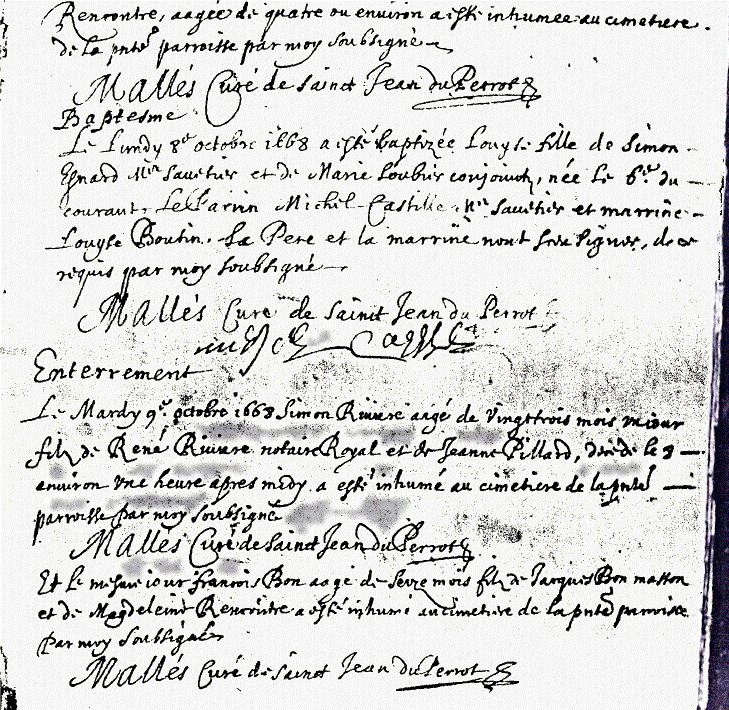 Rencontre, aagée de quatre ou environ a esté inhumée au cimetiere
de la pnte parroisse par moy soubsigné
Mallés Curé de Sainct Jean du Perrot
Baptesme
Le Lundy 8e octobre 1668 a esté baptizée Louyse fille de Simon
Mer Sauetier et de Marie Loubier conjoincts, née le 6e du
courant, Le Parrin Michel Castille Mer Sauetier et marrine
Louyse Boutin. Le Pere et la marrine nont sceu signer, de ce
requis par moy soubsigné
Mallés Curé de Sainct Jean du Perrot
Enterrement
Le Mardy 9e octobre 1668 Simon Riviere aagé de vingt trois mois
filz de René Riviere notaire Royal et de Jeanne Pillard, décédé le 8
environ une heure apres midy a esté inhumé au cimetiere de la pnte
parroisse par moy soubsigné
Mallés Curé de Sainct Jean du Perrot
Et le mesme jour francois Bon aagé de seize mois filz de Jacques Bon masson
et de Magdeleine Rencontre a esté inhumé au cimetiere de la pnte parroisse
par moy soubsigné
Mallés Curé de Sainct Jean du Perrot